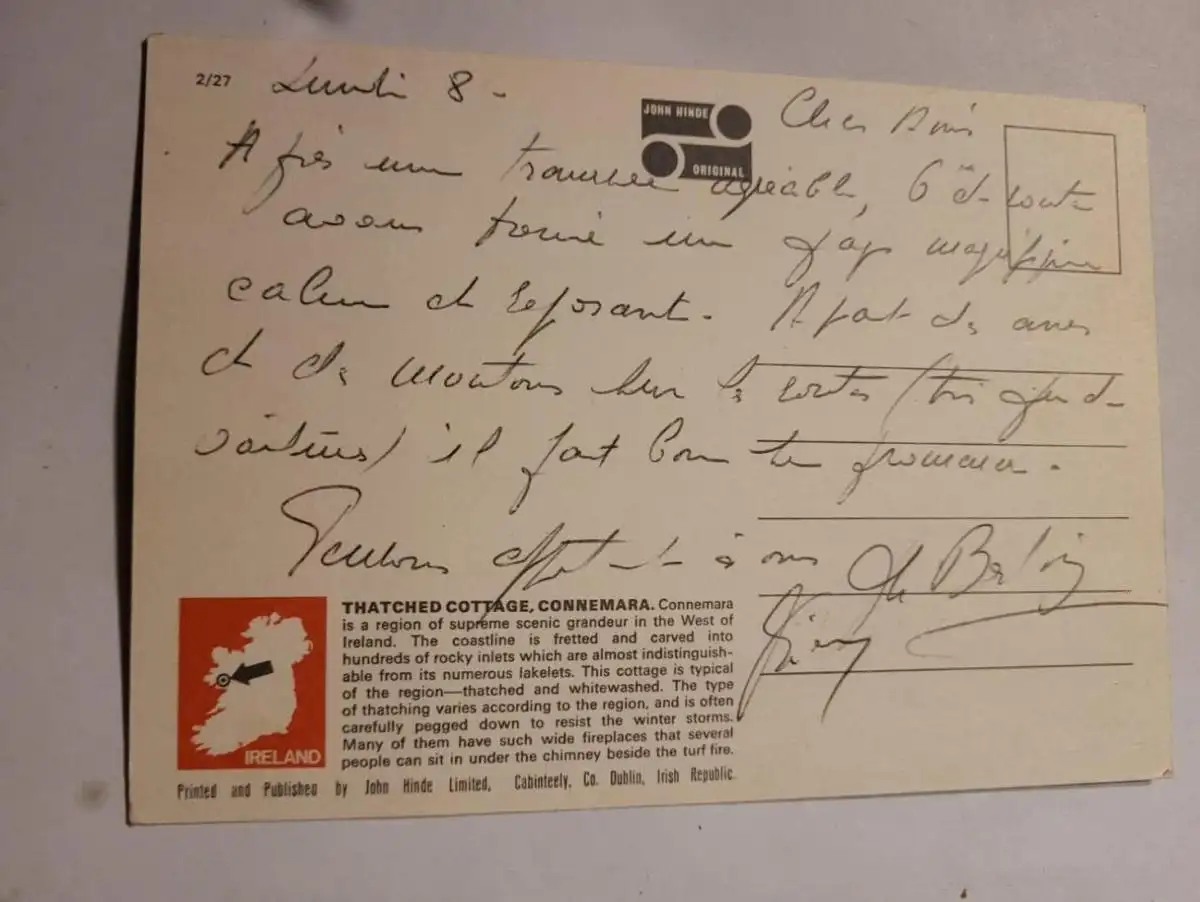 2/27
Lundi 8 -
JOHN HINDE
ORIGINAL
Chers Amis
Après une traversée agréable, 6 de route
avons trouvé un pays magnifique
calme et reposant. A part des anes
et des moutons sur les routes (très peu de
voitures) il fait bon se promener.
Pensons à vous
THATCHED COTTAGE, CONNEMARA. Connemara
is a region of supreme scenic grandeur in the West of
Ireland. The coastline is fretted and carved into
hundreds of rocky inlets which are almost indistinguish-
able from its numerous lakelets. This cottage is typical
of the region—thatched and whitewashed. The type
of thatching varies according to the region, and is often
carefully pegged down to resist the winter storms.
Many of them have such wide fireplaces that several
people can sit in under the chimney beside the turf fire.
IRELAND
Printed and Published by John Hinde Limited, Cabinteely, Co. Dublin, Irish Republic.